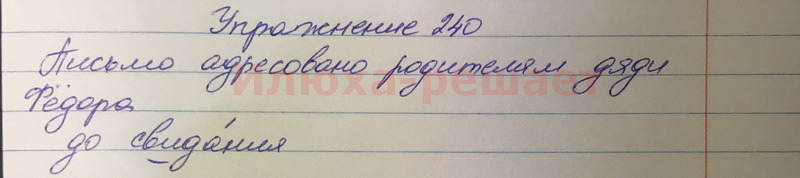 Упражнение 240
Письмо адресовано родителям дяди
Илюха-решает
Фёдора
до свида́ния